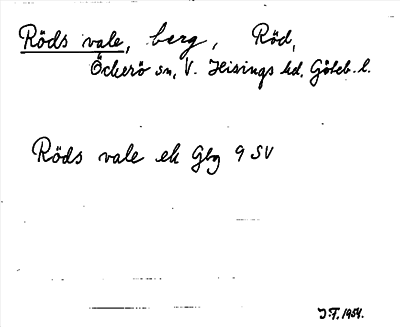 Röds vale, berg, Röd,
Öckerö sn, V. Hisings hd, Göteb. l.
Röds vale ek Gbg 9 SV
J.F. 1954.